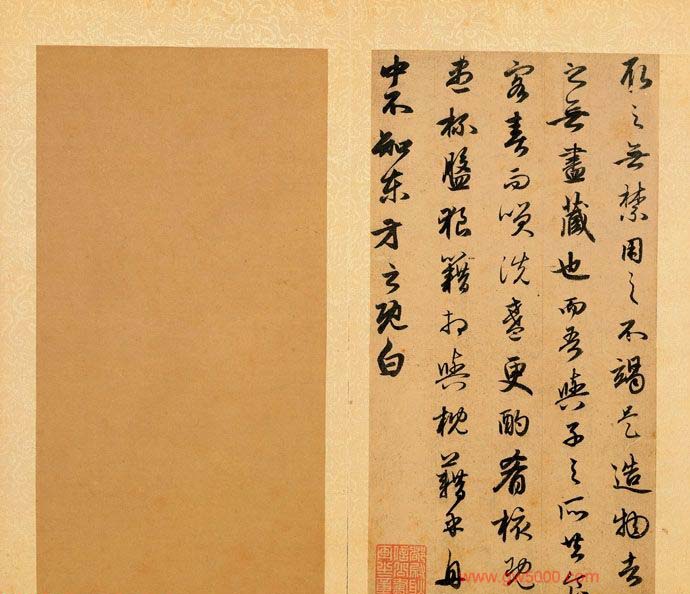 取之無禁用之不竭是造物者
之無盡藏也而吾與子之所共
客喜而笑洗盞更酌肴核既
盡杯盤狼籍相與枕藉乎舟
中不知東方之既白
www.gw5000.com